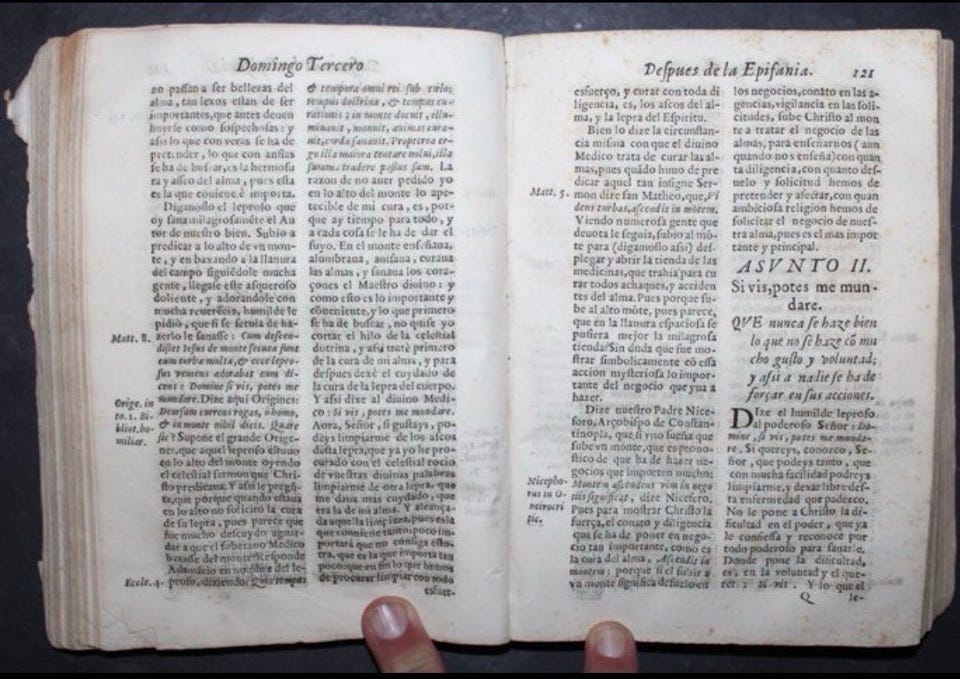 Domingo Tercero
no passan a ser bellezas del
alma, tan lexos estan de ser
importantes, que antes deuen
huyrse como sospechosas: y
assi lo que con veras se ha de
pretender, lo que con ansias
se ha de buscar, es la hermosu
ra y asseo del alma, pues esta
es la que cōuiene è importa.
Diganoslo el leproso que
oy sana milagrosamēte el Au
tor de nuestro bien. Subio a
predicar a lo alto de vn mon-
te, y en baxando a la llanura
del campo siguiēdole mucha
gente, llegase este asqueroso
doliente, y adorandole con
mucha reuerēcia, humilde le
pidiò, que si se seruia de ha-
Matt. 8.
zerlo le sanasse: Cum descen-
disset Iesus de monte secutæ sunt
eum turbæ multæ, & ecce lepro-
sus veniens adorabat eum di-
cens: Domine si vis, potes me
mundare. Dize aqui Origines:
Orige. in
to. 1. Bi-
bliot. ho-
miliar.
Deorsum currens rogas, ò homo,
& in monte nihil dicis. Quare
sic? Supone el grande Orige-
nes, que aquel leproso estuuo
en lo alto del monte oyendo
el celestial sermon que Chri-
sto predicaua. Y assi le pregū-
ta, que porque quando estaua
en lo alto no solicitò la cura
de su lepra, pues parece que
fue mucho descuydo aguar-
dar a que el soberano Medico
baxasse del monte? Responde
Adamancio en nombre del le-
Eccle. 4.
proso, diziendo: Quia tempus
& tempora omni rei sub cælo;
tempus doctrinæ, & tempus cu-
rationis; in monte docuit, illu-
minauit, monuit, animas cura-
uit, corda sanauit. Propterea er-
go illa maiora tentare nolui, illa
summa tradere passus sum. La
razon de no auer pedido yo
en lo alto del monte lo ape-
tecible de mi cura, es, por-
que ay tiempo para todo, y
a cada cosa se le ha de dar el
suyo. En el monte enseñaua,
alumbraua, auisaua, curaua
las almas, y sanaua los cora-
çones el Maestro diuino: y
como esto es lo importante y
cōueniente, y lo que primero
se ha de buscar, no quise yo
cortar el hilo de la celestial
dotrina, y assi tratè primero
de la cura de mi alma, y para
despues dexè el cuydado de
la cura de la lepra del cuerpo.
Y assi dixe al diuino Medi-
co: Si vis, potes me mundare.
Aora, Señor, si gustays, po-
deys limpiarme de los ascos
desta lepra, que ya yo he pro-
curado con el celestial rocio
de vuestras diuinas palabras
limpiarme de otra lepra, que
me daua mas cuydado, que
era la de mi alma. Y alcança-
da aquella limpieza, pues es la
que conuiene tanto, poco im-
portarà que no consiga esto-
tra, que es la que importa tan
poco: que en fin lo que hemos
de procurar limpiar con todo
esfuer-
Despues de la Epifania. 121
esfuerço, y curar con toda di
ligencia, es, los ascos del al-
ma, y la lepra del Espiritu.
Bien lo dize la circunstan-
cia misma con que el diuino
Medico trata de curar las al-
mas, pues quādo huuo de pre
dicar aquel tan insigne Ser-
Matt. 5.
mon dize san Matheo, que, Vi
dens turbas, ascendit in mōtem.
Viendo numerosa gente que
deuota le seguia, subio al mō-
te para (digamoslo assi) des-
plegar y abrir la tienda de las
medicinas, que trahia para cu
rar todos achaques, y acciden
tes del alma. Pues porque su-
be al alto mōte, pues parece,
que en la llanura espaciosa se
pusiera mejor la milagrosa
tienda? Sin duda que fue mo-
strar simbolicamente cō essa
accion mysteriosa lo impor-
tante del negocio que yua a
hazer.
Dize nuestro Padre Nice-
foro, Arçobispo de Constan-
tinopla, que si vno sueña que
sube vn monte, que es pronos-
tico de que ha de hazer ne-
gocios que importen mucho:
Nicepho-
rus in O-
neirocri
tic.
Montem ascendens vim in nego
tiis significat, dize Niceforo.
Pues para mostrar Christo la
fuerça, el conato y diligencia
que se ha de poner en nego-
cio tan importante, como es
la cura del alma, Ascendit in
montem: porque si el subir a
vn monte significa desuelo en
los negocios, conato en las a-
gencias, vigilancia en las soli-
citudes, sube Christo al mon
te a tratar el negocio de las
almas, para enseñarnos (aun
quando nos enseña) con quan
ta diligencia, con quanto des-
uelo y solicitud hemos de
pretender y afectar, con quan
ambiciosa religion hemos de
solicitar el negocio de nues-
tra alma, pues es el mas impor
tante y principal.
ASVNTO II.
Si vis, potes me mun-
dare.
QVE nunca se haze bien
lo que no se haze cō mu
cho gusto y voluntad;
y assi a nadie se ha de
forçar en sus acciones.
Dize el humilde leproso
al poderoso Señor: Do-
mine, si vis, potes me munda-
re. Si quereys, conozco, Se-
ñor, que podeys tanto, que
con mucha facilidad podreys
limpiarme, y dexar libre des-
ta enfermedad que padezco.
No le pone a Christo la di-
ficultad en el poder, que ya
le confiessa y reconoce por
todo poderoso para sanarle.
Donde pone la dificultad,
es, en la voluntad y el que-
rer: Si vis. Y lo que el
Q le-